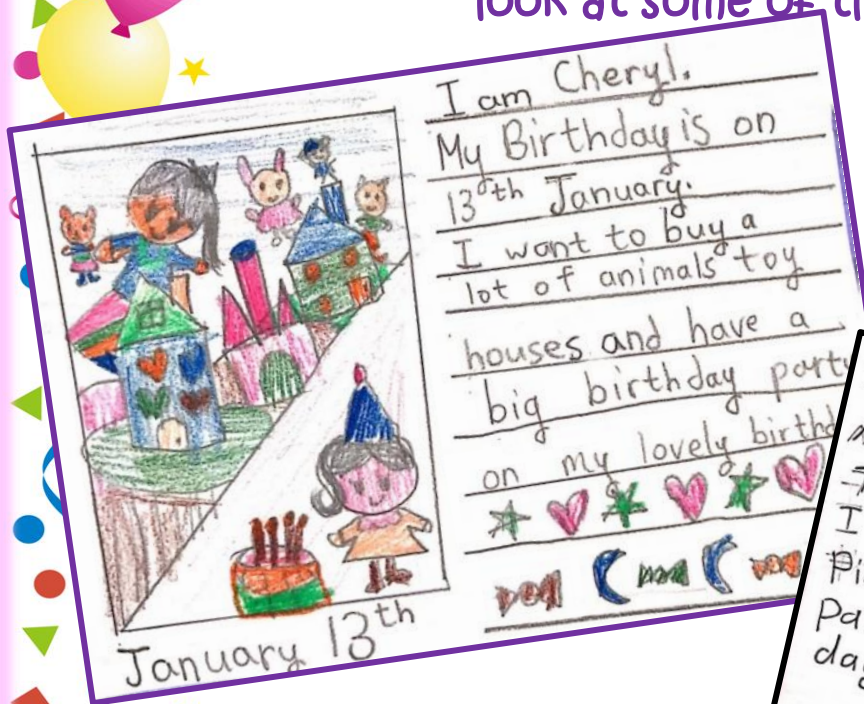 look at some of
I am Cheryl.
My Birthday is on
13th January.
I want to buy a
lot of animals toy
houses and have a
big birthday party
on my lovely
January 13th
I